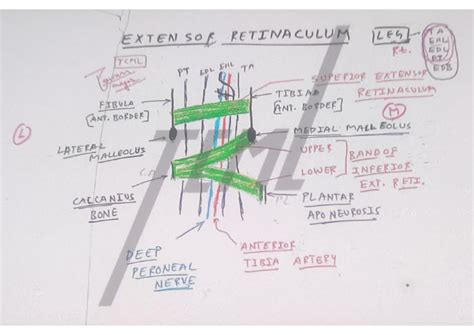 EXTENSOR RETINACULUM
LEG
RT.
TA
EHL
EDL
PT
EDB
TCML
PT EDL EHL TA
FIBULA
[ANT. BORDER]
TIBIA
[ANT. BORDER]
SUPERIOR EXTENSOR
RETINACULUM
L
M
LATERAL
MALLEOLUS
MEDIAL MALLEOLUS
UPPER
LOWER
BAND OF
INFERIOR
EXT. RETI.
CALCANIUS
BONE
PLANTAR
APONEUROSIS
DEEP
PERONEAL
NERVE
ANTERIOR
TIBIA ARTERY